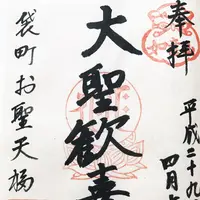 奉拝
平成二十九
四月
大聖歓喜
袋町お聖天福